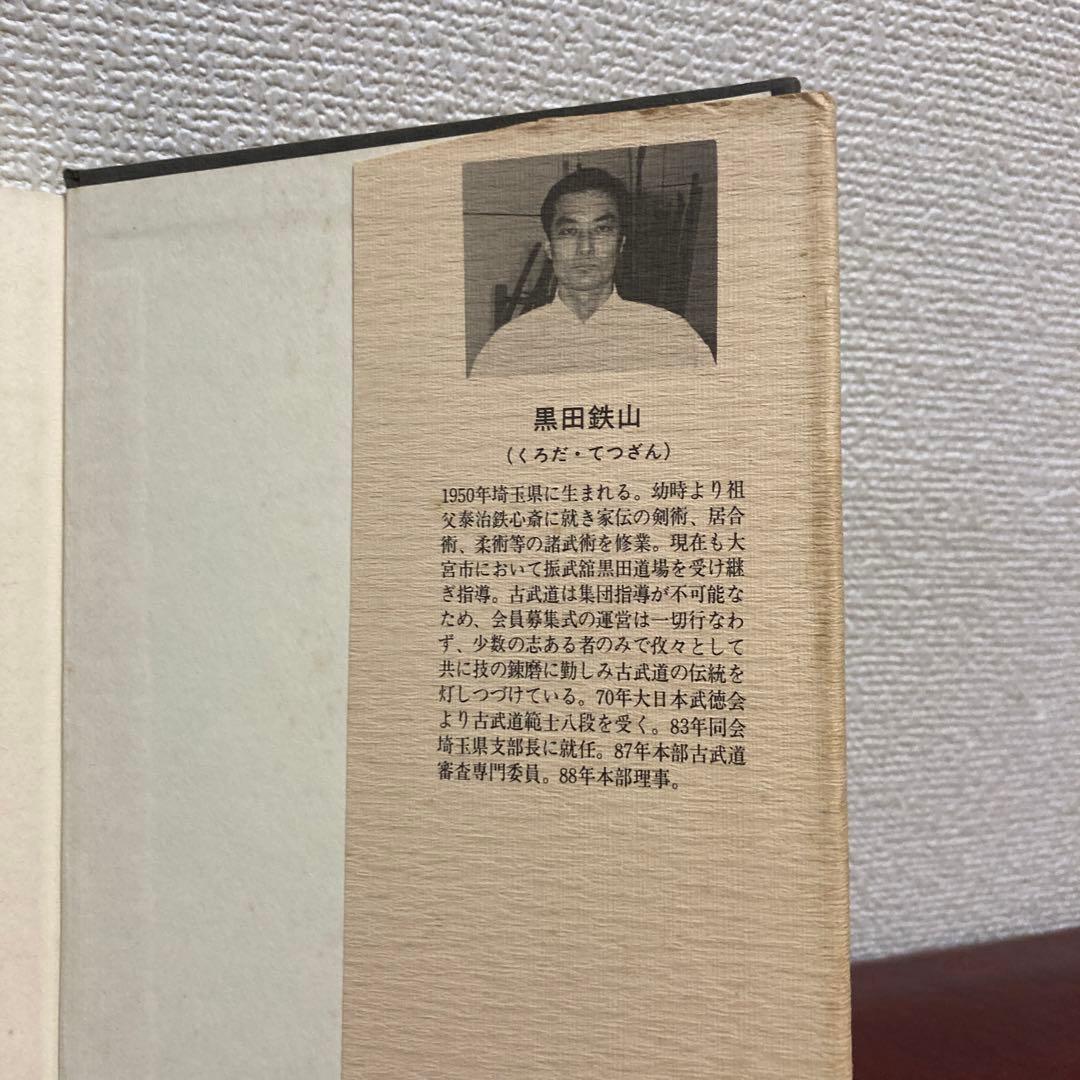 黒田鉄山
（くろだ・てつざん）
1950年埼玉県に生まれる。幼時より祖
父泰治鉄心斎に就き家伝の剣術、居合
術、柔術等の諸武術を修業。現在も大
宮市において振武舘黒田道場を受け継
ぎ指導。古武道は集団指導が不可能な
ため、会員募集式の運営は一切行なわ
ず、少数の志ある者のみで孜々として
共に技の錬磨に勤しみ古武道の伝統を
灯しつづけている。70年大日本武徳会
より古武道範士八段を受く。83年同会
埼玉県支部長に就任。87年本部古武道
審査専門委員。88年本部理事。